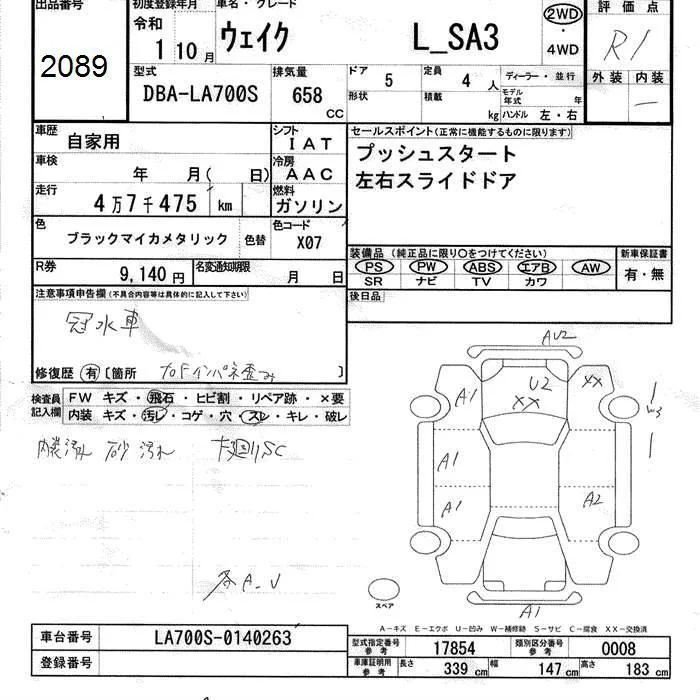 出品番号
2089
初度登録年月
令和
1 10月
車名・グレード
ウェイク L_SA3
2WD
・
4WD
評価点
R1
外装 内装
型式
DBA-LA700S
排気量
658 cc
ドア 5
形状
定員 4 人
積載 kg
ディーラー・並行
モデル年式 年
ハンドル 左・右
車歴 自家用
シフト IAT
車検 年 月( 日)
冷房 AAC
走行 4万7千475 km
燃料 ガソリン
色 ブラックマイカメタリック 色替
色コード X07
R券 9,140円
名変通知期限 月 日
セールスポイント(正常に機能するものに限ります)
プッシュスタート
左右スライドドア
装備品(純正品に限り〇をつけてください)
PS PW ABS エアB AW
SR ナビ TV カワ
新車保証書
有・無
後日品
注意事項申告欄(不具合内容等は具体的に記入して下さい)
冠水車
修復歴 有 〔箇所 右Fインパネ歪み 〕
検査員記入欄
FW キズ・飛石・ヒビ割・リペア跡・×要
内装 キズ・汚レ・コゲ・穴・スレ・キレ・破レ
内装汚れ 砂汚れ 下廻りSC
各A-U
AU2
A1
U2
XX
XX
W3
A1
A1
A2
A1
スペア
A-キズ E-エクボ U-凹み W-補修跡 S-サビ C-腐食 XX-交換済
車台番号 LA700S-0140263
登録番号
型式指定番号 参考 17854
類別区分番号 参考 0008
車庫証明用 参考 長さ 339 cm 幅 147 cm 高さ 183 cm